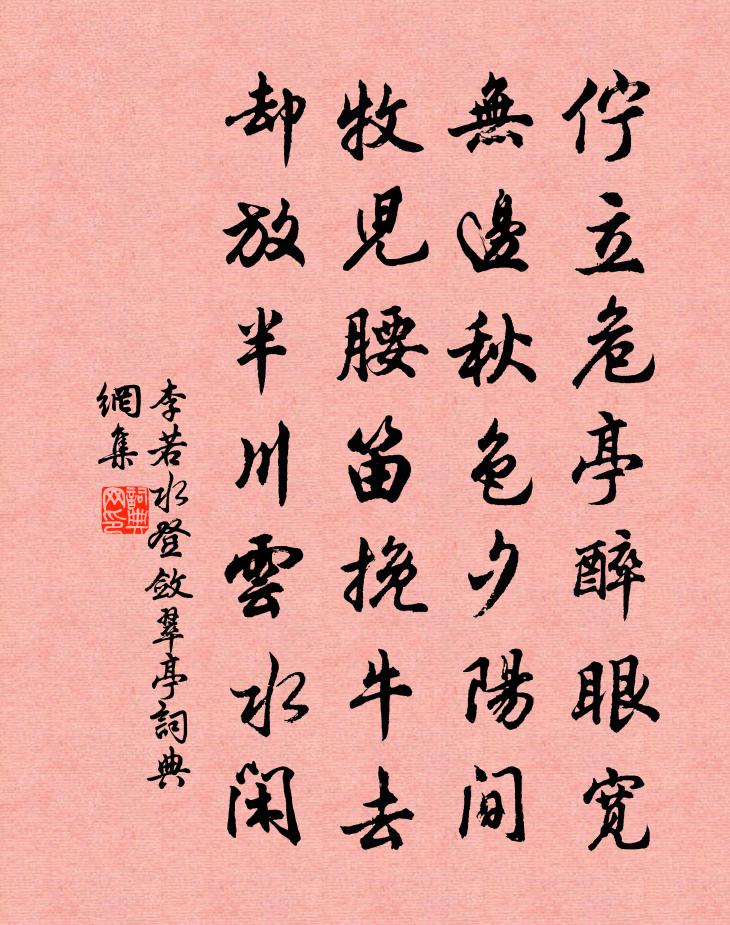 佇立危亭醉眼寬
無邊秋色夕陽間
牧児腰笛挽牛去
却放半川雲水闲
李若水登斂翠亭詞典
網集
詞典
网印